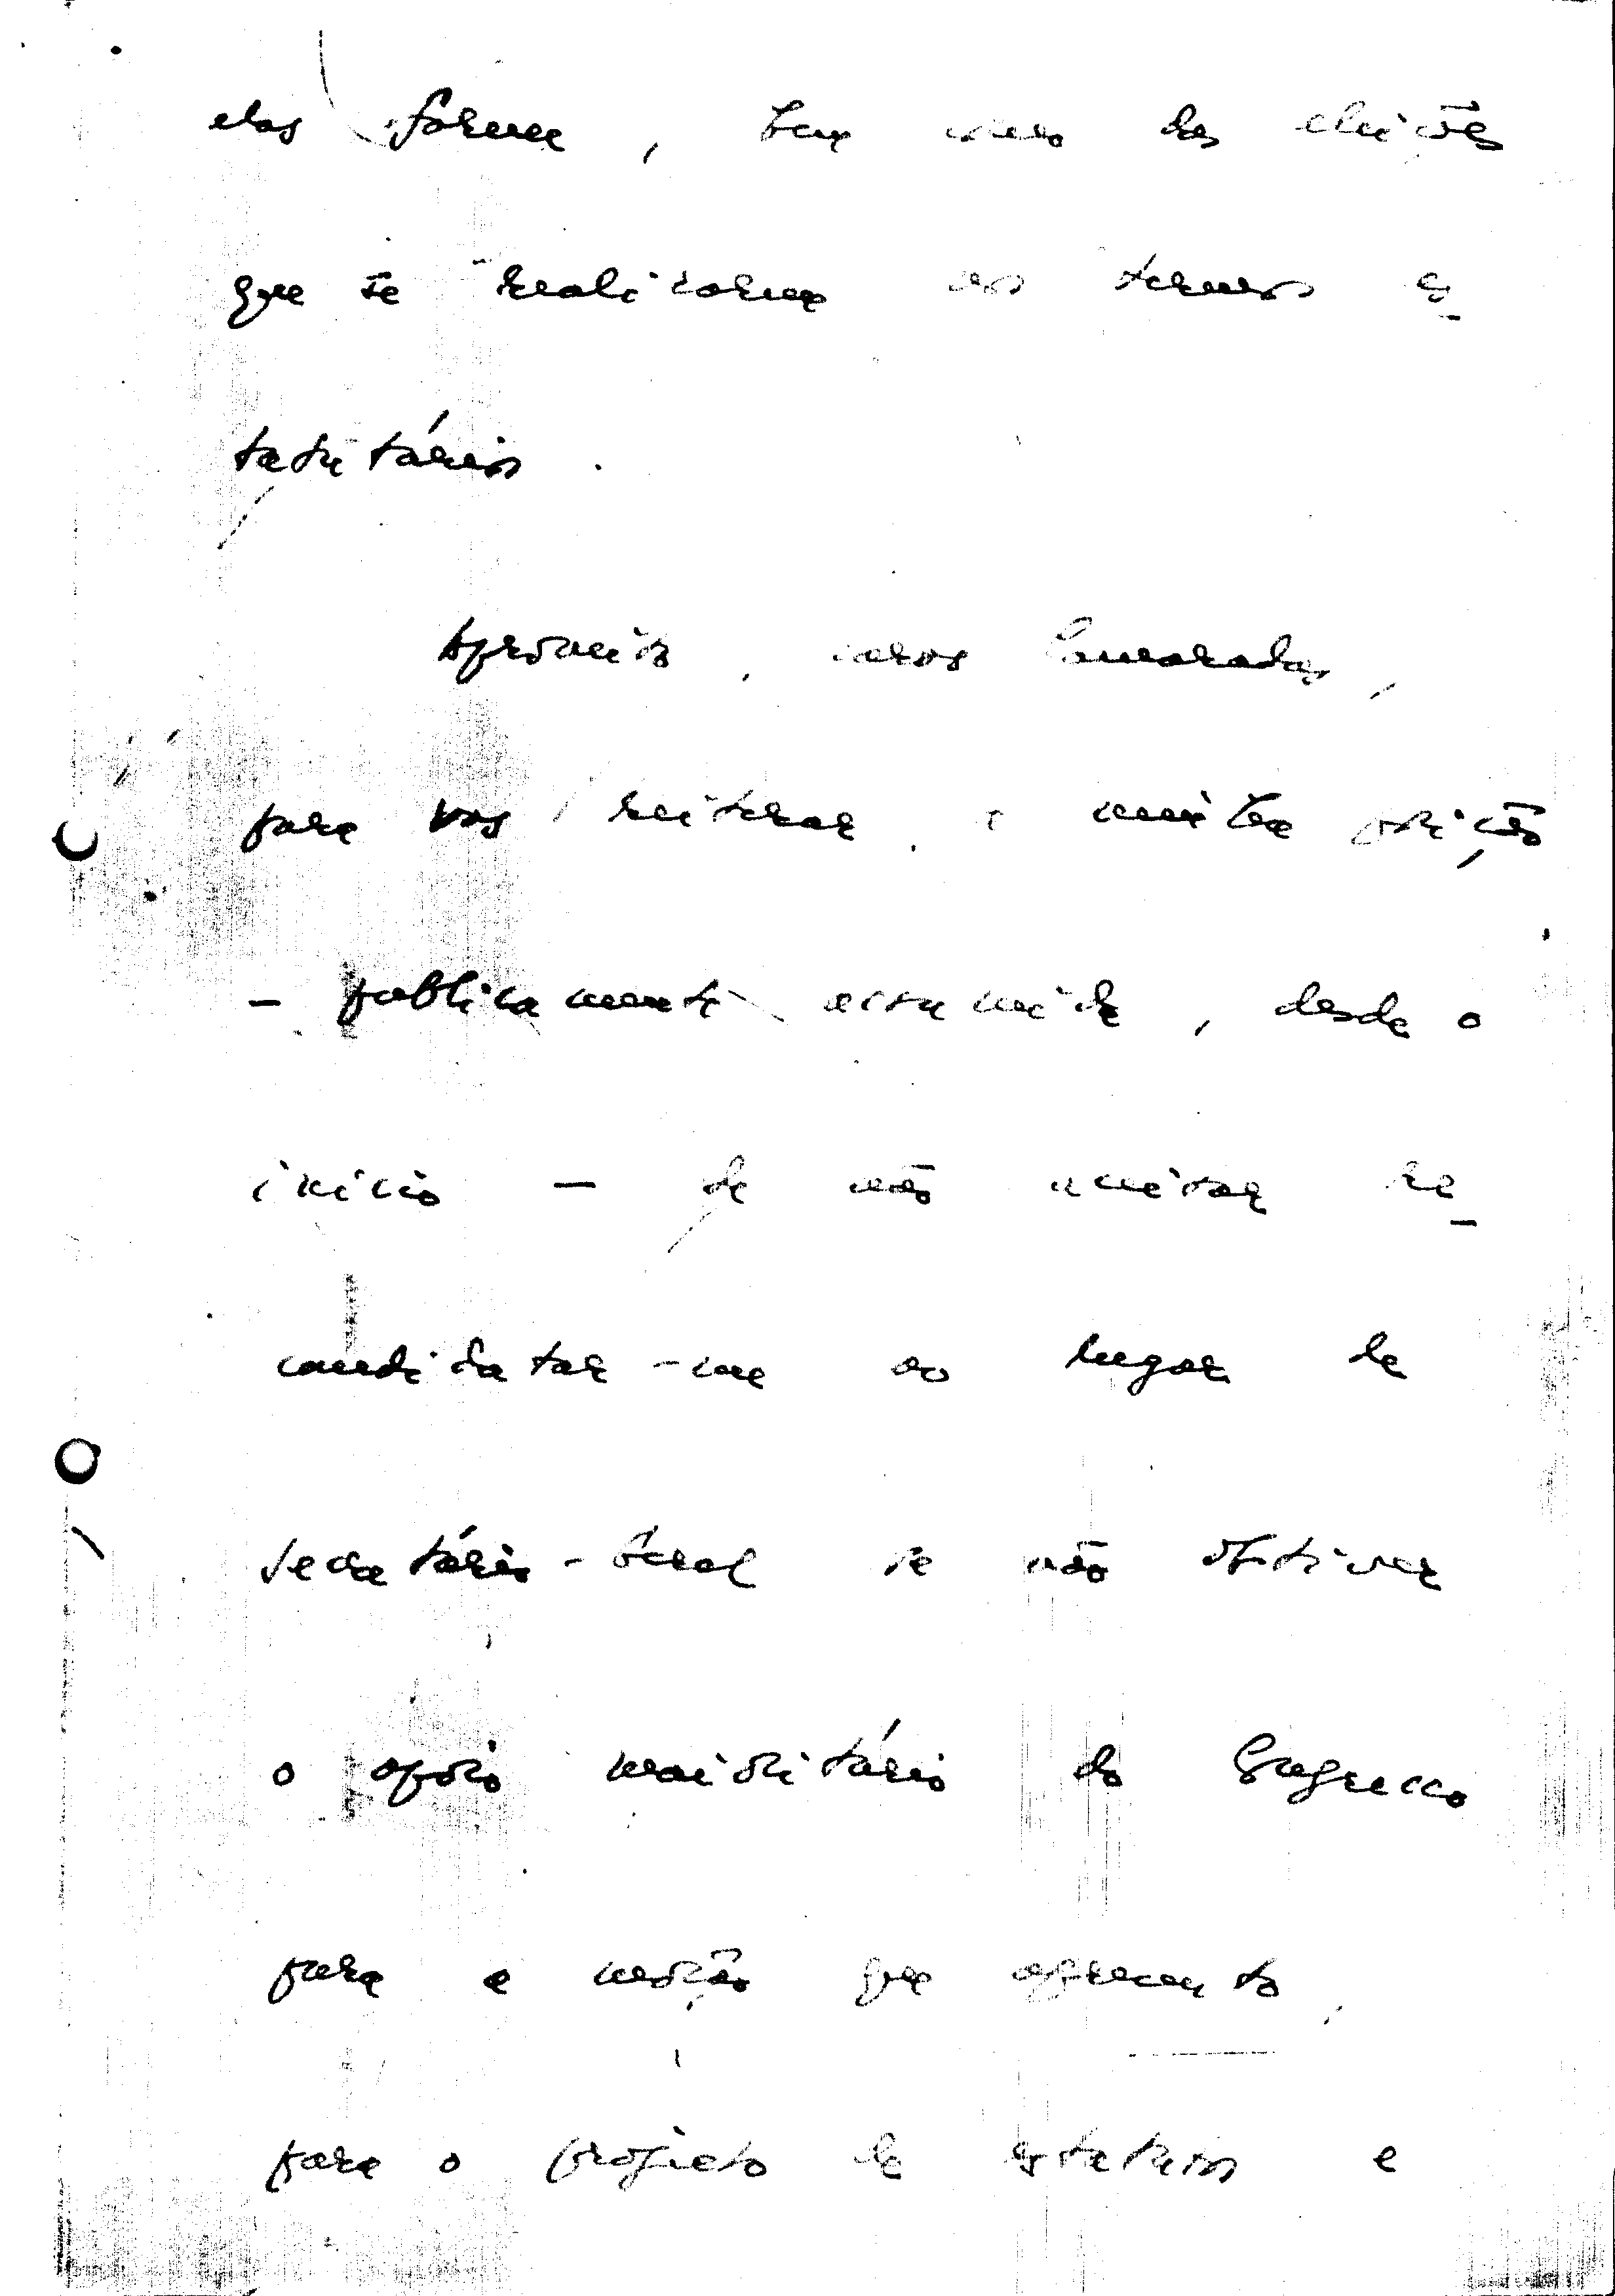 elas forem, bem como das eleições
que se realizarem nos termos es-
tatutários.
Aproveito, caros Camaradas,
para vos reiterar a minha posição
- publicamente assumida, desde o
início - de não aceitar re-
candidatar-me ao lugar de
Secretário-Geral se não obtiver
o apoio maioritário do Congresso
para a moção que apresento,
para o projecto de estatutos e